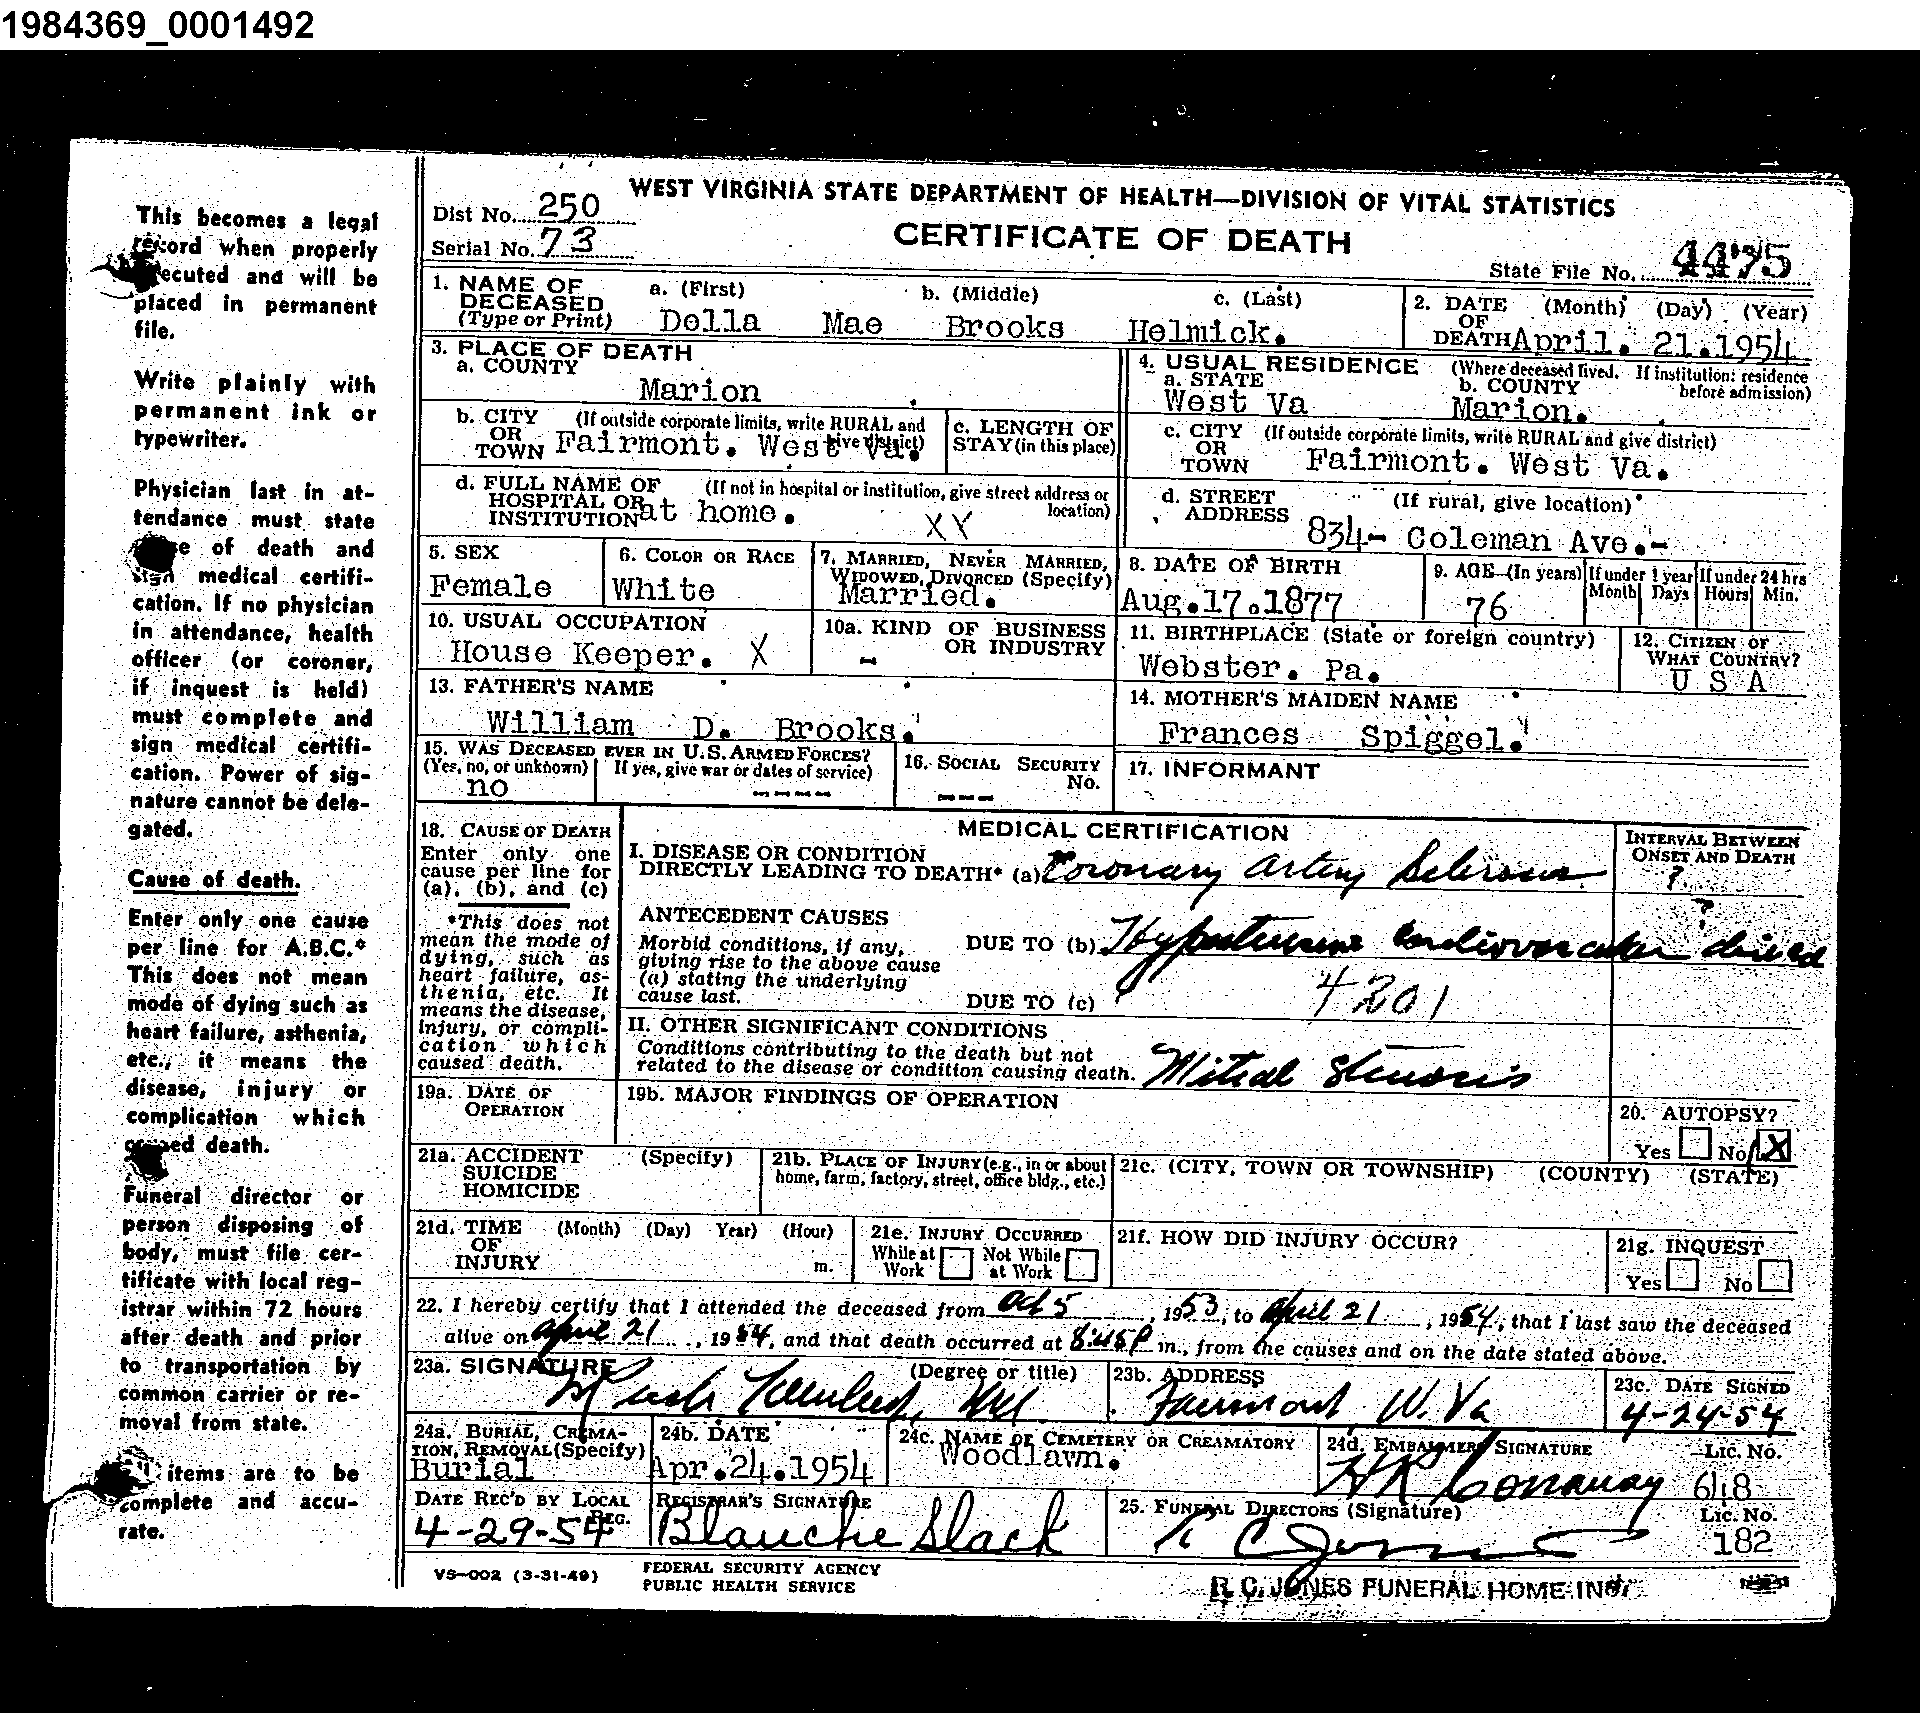 1984369_0001492
This becomes a legal
record when properly
executed and will be
placed in permanent
file.
Write plainly with
permanent ink or
typewriter.
Physician last in at-
tendance must state
of death and
sign medical certifi-
cation. If no physician
in attendance, health
officer (or coroner,
if inquest is held)
must complete and
sign medical certifi-
cation. Power of sig-
nature cannot be dele-
gated.
Cause of death.
Enter only one cause
per line for A.B.C.*
This does not mean
mode of dying such as
heart failure, asthenia,
etc., it means the
disease, injury or
complication which
caused death.
Funeral director or
person disposing of
body, must file cer-
tificate with local reg-
istrar within 72 hours
after death and prior
to transportation by
common carrier or re-
moval from state.
items are to be
complete and accu-
rate.
WEST VIRGINIA STATE DEPARTMENT OF HEALTH—DIVISION OF VITAL STATISTICS
Dist No. 250
Serial No. 73
CERTIFICATE OF DEATH
State File No. 4475
1. NAME OF DECEASED (Type or Print) a. (First) b. (Middle) c. (Last)
Della Mae Brooks Helmick.
2. DATE OF DEATH (Month) (Day) (Year)
April. 21.1954
3. PLACE OF DEATH
a. COUNTY
Marion
4. USUAL RESIDENCE (Where deceased lived. If institution: residence before admission)
a. STATE b. COUNTY
West Va Marion.
b. CITY OR TOWN (If outside corporate limits, write RURAL and give district)
Fairmont. West Va.
c. LENGTH OF STAY (in this place)
c. CITY OR TOWN (If outside corporate limits, write RURAL and give district)
Fairmont. West Va.
d. FULL NAME OF HOSPITAL OR INSTITUTION (If not in hospital or institution, give street address or location)
at home. XY
d. STREET ADDRESS (If rural, give location)
834- Coleman Ave.-
5. SEX
Female
6. COLOR OR RACE
White
7. MARRIED, NEVER MARRIED, WIDOWED, DIVORCED (Specify)
Married.
8. DATE OF BIRTH
Aug.17.1877
9. AGE (In years)
76
If under 1 year Month Days
If under 24 hrs Hours Min.
10. USUAL OCCUPATION
House Keeper. X
10a. KIND OF BUSINESS OR INDUSTRY
-
11. BIRTHPLACE (State or foreign country)
Webster. Pa.
12. CITIZEN OF WHAT COUNTRY?
U S A
13. FATHER'S NAME
William D. Brooks.
14. MOTHER'S MAIDEN NAME
Frances Spiggel.
15. WAS DECEASED EVER IN U.S. ARMED FORCES?
(Yes, no, or unknown) If yes, give war or dates of service)
no ----
16. SOCIAL SECURITY No.
---
17. INFORMANT
18. CAUSE OF DEATH
Enter only one
cause per line for
(a), (b), and (c)
*This does not
mean the mode of
dying, such as
heart failure, as-
thenia, etc. It
means the disease,
injury, or compli-
cation which
caused death.
MEDICAL CERTIFICATION
INTERVAL BETWEEN ONSET AND DEATH
I. DISEASE OR CONDITION
DIRECTLY LEADING TO DEATH* (a) Coronary artery Sclerosis ?
ANTECEDENT CAUSES
Morbid conditions, if any,
giving rise to the above cause
(a) stating the underlying
cause last.
DUE TO (b) Hypertensive cardiovascular disease ?
DUE TO (c)
4201
II. OTHER SIGNIFICANT CONDITIONS
Conditions contributing to the death but not
related to the disease or condition causing death.
Mitral Stenosis
19a. DATE OF OPERATION
19b. MAJOR FINDINGS OF OPERATION
20. AUTOPSY?
Yes No X
21a. ACCIDENT SUICIDE HOMICIDE (Specify)
21b. PLACE OF INJURY (e.g., in or about home, farm, factory, street, office bldg., etc.)
21c. (CITY, TOWN OR TOWNSHIP) (COUNTY) (STATE)
21d. TIME OF INJURY (Month) (Day) Year) (Hour) m.
21e. INJURY OCCURRED
While at Work Not While at Work
21f. HOW DID INJURY OCCUR?
21g. INQUEST
Yes No
22. I hereby certify that I attended the deceased from Oct 5, 1953, to April 21, 1954, that I last saw the deceased
alive on April 21, 1954, and that death occurred at 8:45P m., from the causes and on the date stated above.
23a. SIGNATURE (Degree or title)
23b. ADDRESS
Fairmont, W. Va
23c. DATE SIGNED
4-24-54
24a. BURIAL, CREMA-
TION, REMOVAL (Specify)
Burial
24b. DATE
Apr.24.1954
24c. NAME OF CEMETERY OR CREAMATORY
Woodlawn.
24d. EMBALMERS SIGNATURE Lic. No.
HR Conaway 648
DATE REC'D BY LOCAL REG.
4-29-54
REGISTRAR'S SIGNATURE
Blanche Slack
25. FUNERAL DIRECTORS (Signature) Lic. No.
R C Jones 182
VS-002 (3-31-49)
FEDERAL SECURITY AGENCY
PUBLIC HEALTH SERVICE
R. C. JONES FUNERAL HOME INC.